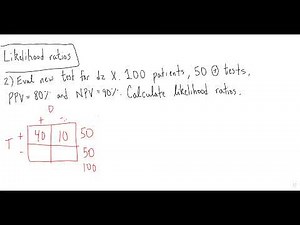 Likelihood ratios
2) Eval new test for dz X. 100 patients, 50 ⊕ tests,
PPV = 80% and NPV = 90%. Calculate likelihood ratios.
D
+ -
T + 40 10 50
- 50
100